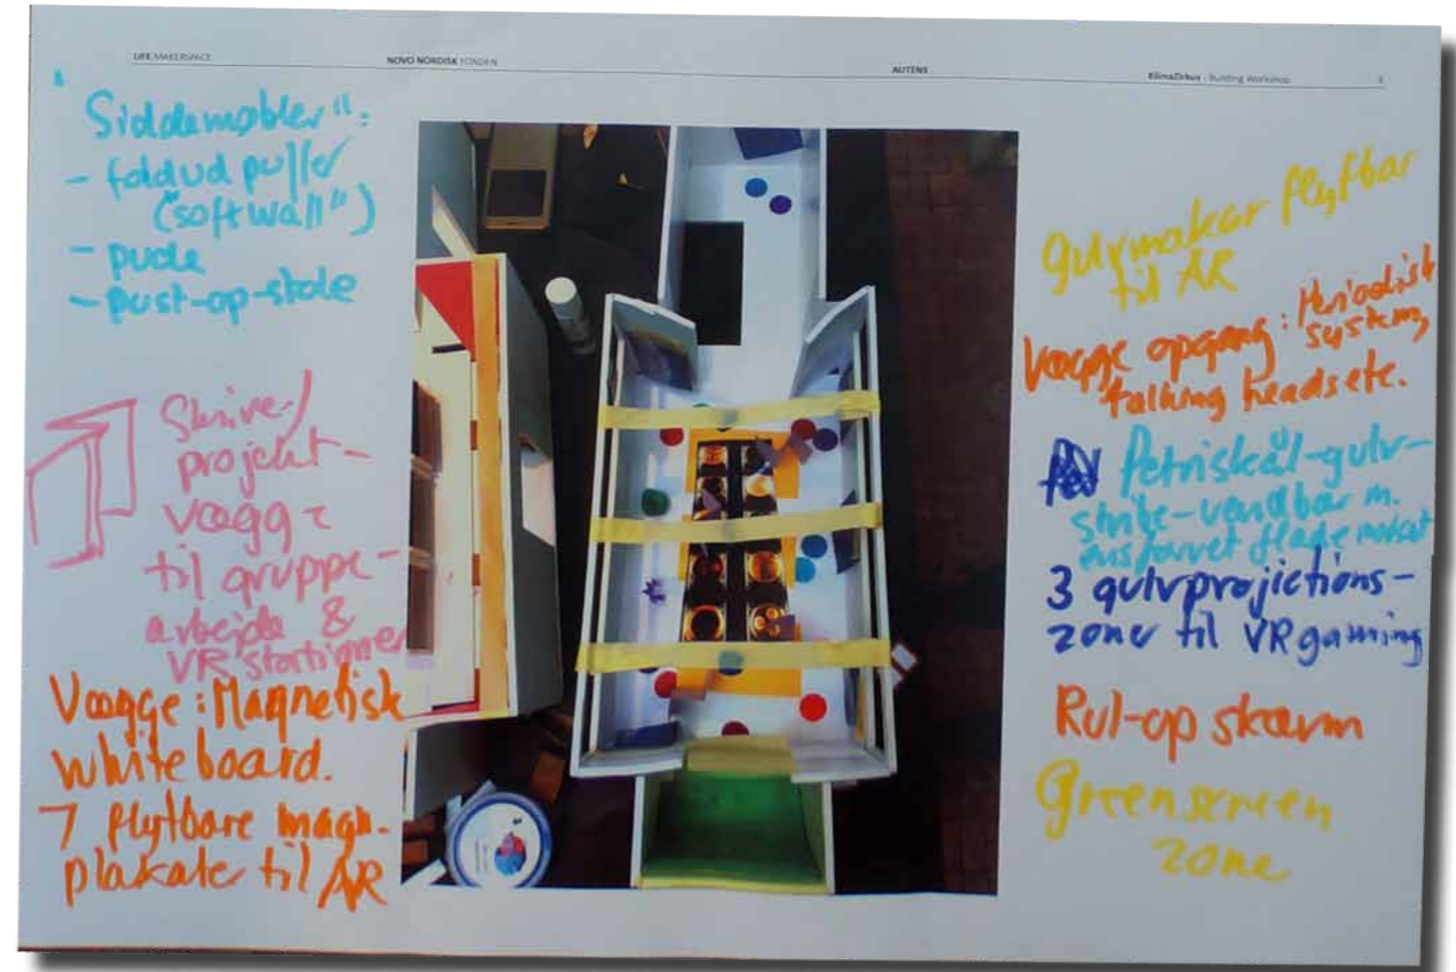 LIFE MAKERSPACE
NOVO NORDISK FONDEN
AUTENS
KlimaZirkus - Building Workshop
"Siddemøbler":
- foldud puffer
("softwall")
- pude
- pust-op-stole
Skrive/
projekt-
vægge
til gruppe-
arbejde &
VR stationer
Vægge: Magnetisk
whiteboard.
7 flytbare magn.
plakater til AR
gulvmakør flytbar
til AR
Vægge opgang: Periodisk
system,
talking heads etc.
Petriskål-gulv-
stribe-vendbar m.
ensfarvet flade modsat
3 gulvprojictions-
zoner til VR gaming
Rul-op skærm
Greenscreen
zone